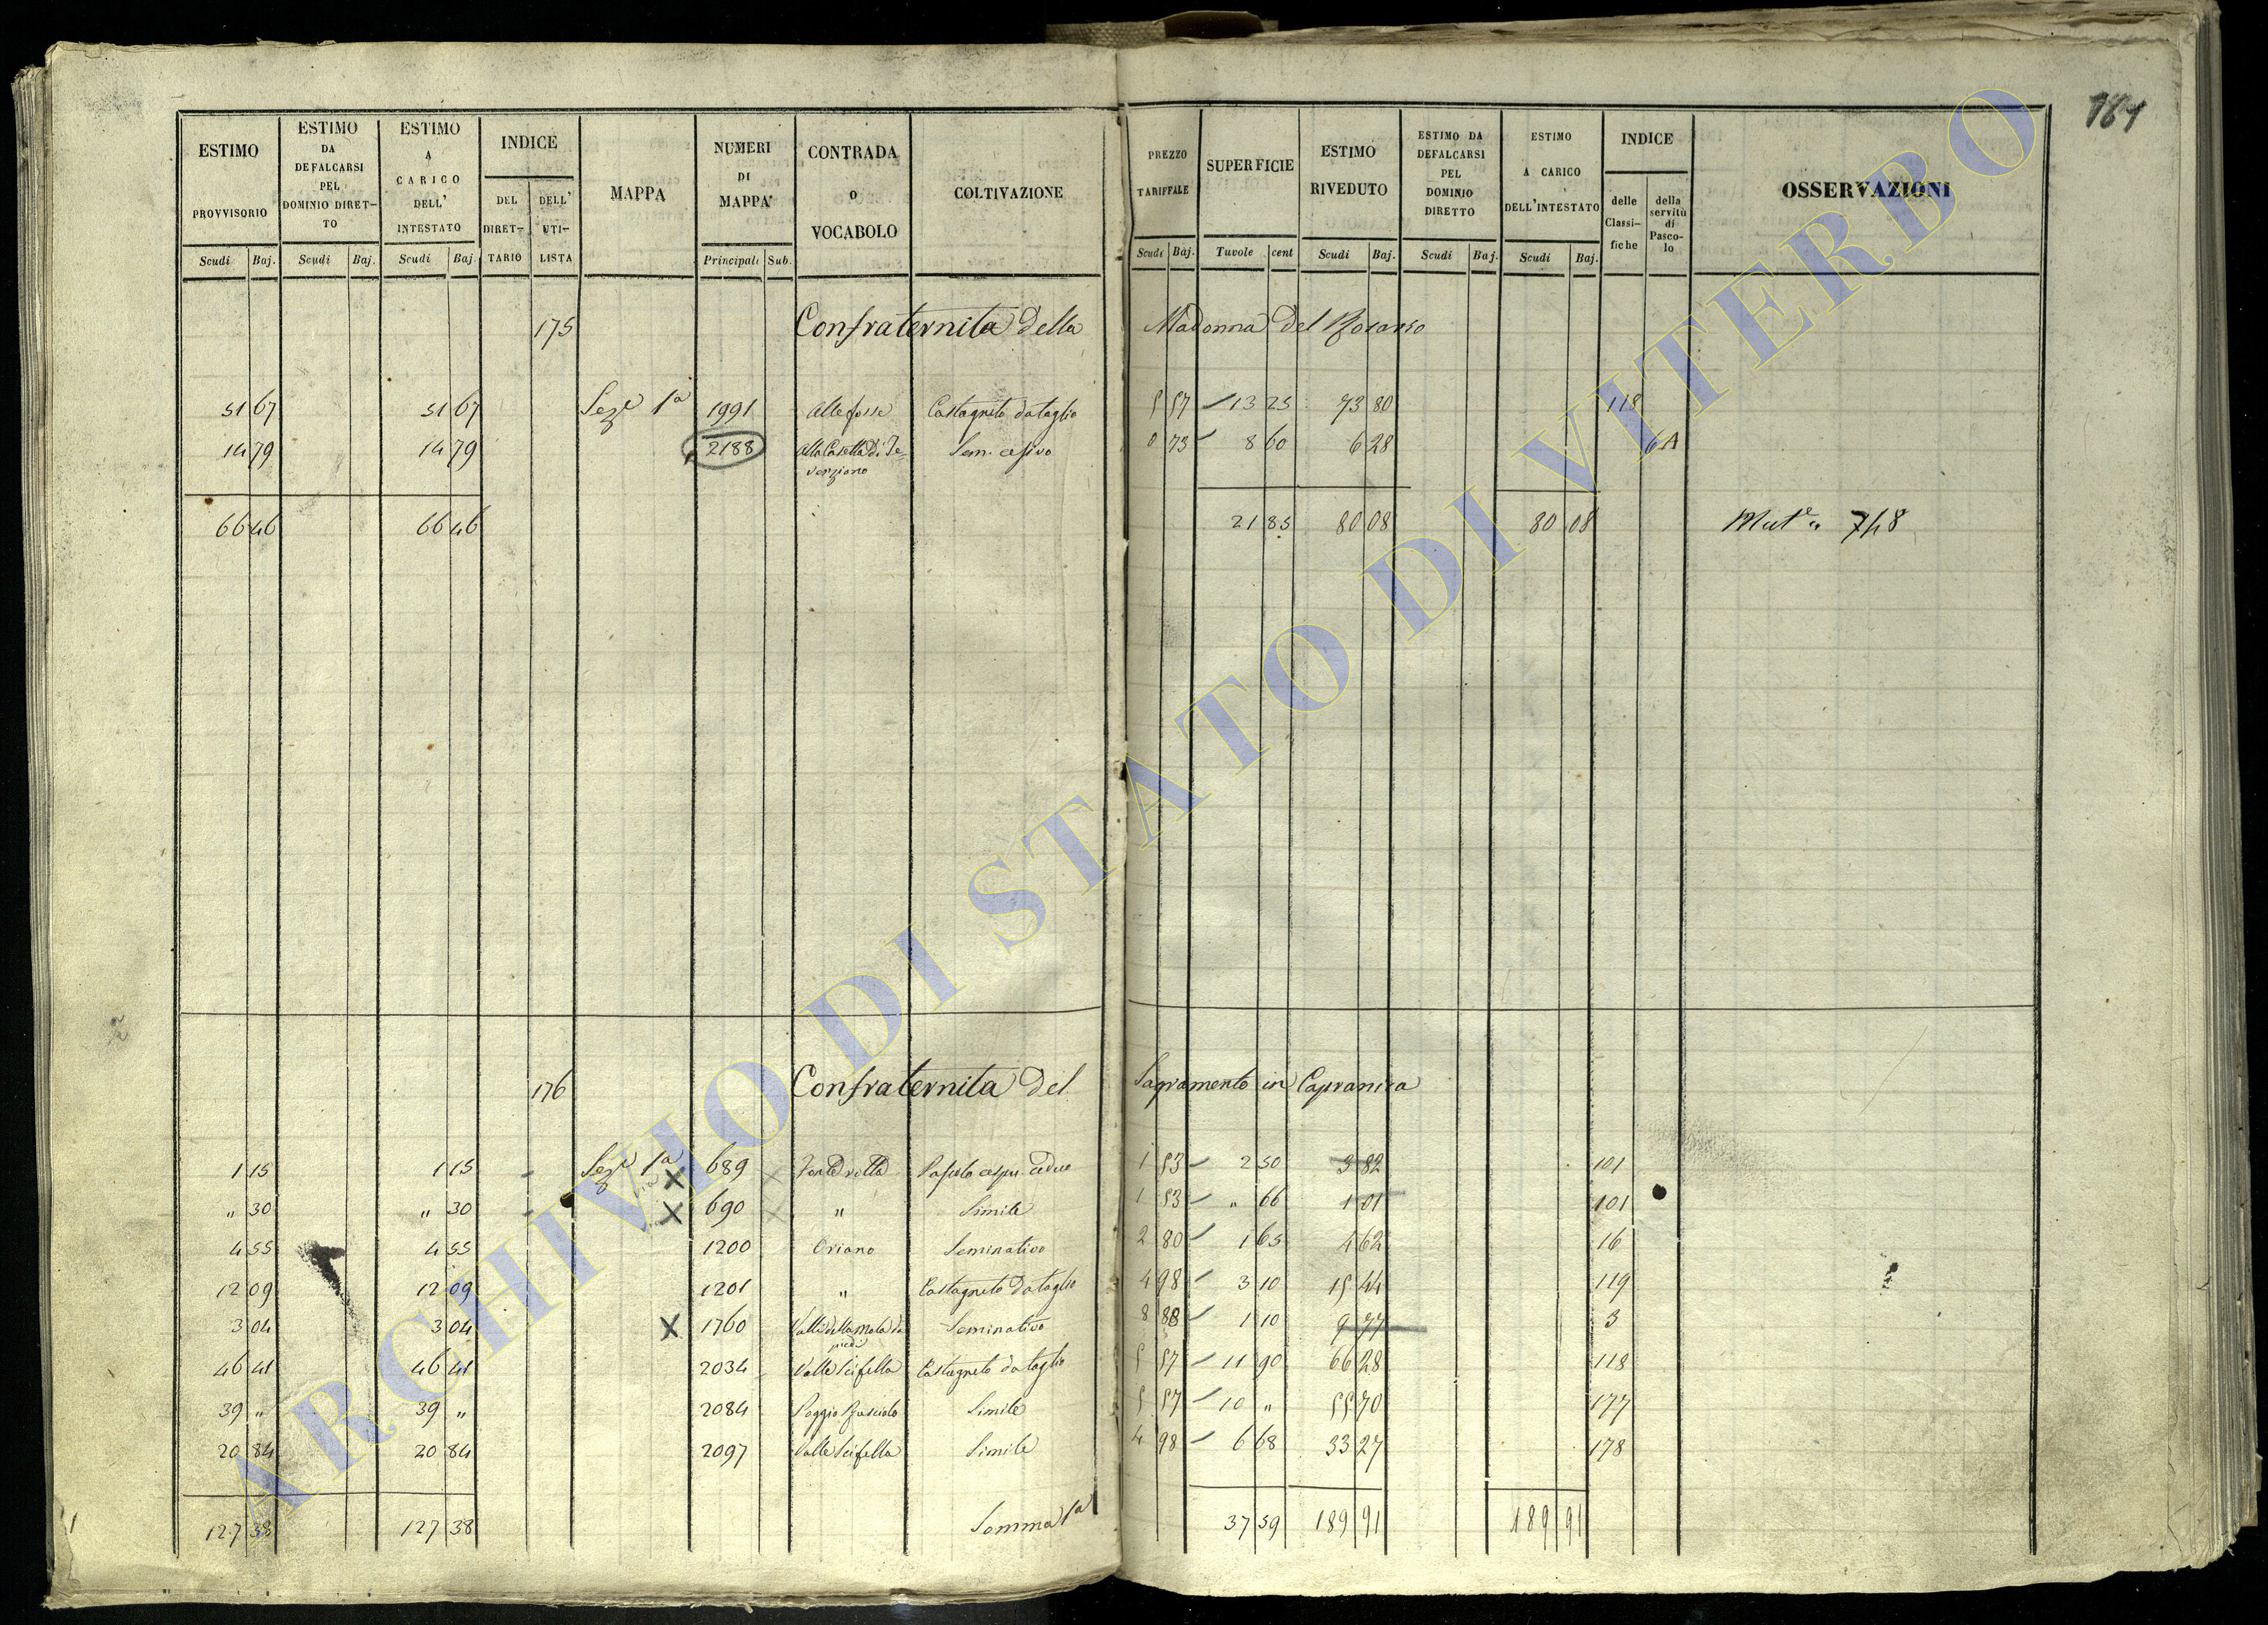 184
ESTIMO PROVVISORIO ESTIMO DA DEFALCARSI PEL DOMINIO DIRET-TO ESTIMO A CARICO DELL' INTESTATO INDICE DEL DIRET-TARIO DELL' UTI-LISTA MAPPA NUMERI DI MAPPA CONTRADA o VOCABOLO COLTIVAZIONE PREZZO TARIFFALE SUPERFICIE ESTIMO RIVEDUTO ESTIMO DA DEFALCARSI PEL DOMINIO DIRETTO ESTIMO A CARICO DELL'INTESTATO INDICE delle Classi-fiche della servitù di Pasco-lo OSSERVAZIONI
Scudi Baj. Scudi Baj. Scudi Baj Principali Sub. Scudi Baj. Tavole cent Scudi Baj. Scudi Baj. Scudi Baj.
175 Confraternita della Madonna del Rosario
51 67 51 67 Seze 1a 1991 Alle fosse Castagneto da taglio 5 57 13 25 73 80 118
14 79 14 79 2188 Alla Casetta di Te-verziano Sem. cesivo 0 73 8 60 6 28 6A
66 46 66 46 21 85 80 08 80 08 Mute " 748
176 Confraternita del Sagramento in Capranica
1 15 1 15 Seze 1a X 689 Pascolo cespu. ceduo 1 53 2 50 3 82 101
" 30 " 30 X 690 " Simile 1 53 " 66 1 01 101
4 55 4 55 1200 Oriano Seminativo 2 80 1 65 4 62 16
12 09 12 09 1201 " Castagneto da taglio 4 98 3 10 15 44 119
3 04 3 04 X 1760 Valle della Mola da piedi Seminativo 8 88 1 10 9 77 3
46 41 46 41 2034 Valle Scifella Castagneto da taglio 5 57 11 90 66 28 118
39 " 39 " 2084 Poggio Rusciolo Simile 5 57 10 " 55 70 177
20 84 20 84 2097 Valle Scifella Simile 4 98 6 68 33 27 178
127 38 127 38 Somma 1a 37 59 189 91 189 91
ARCHIVIO DI STATO DI VITERBO